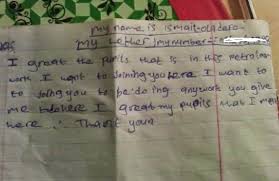 my name is ismail oladare
my Letter / my number =
I great the pupils that is in this metrolan
work I want to Joining you here I want to
to Joing you to be doing any work you give
me to here I great my pupils that I me
here . Thank your